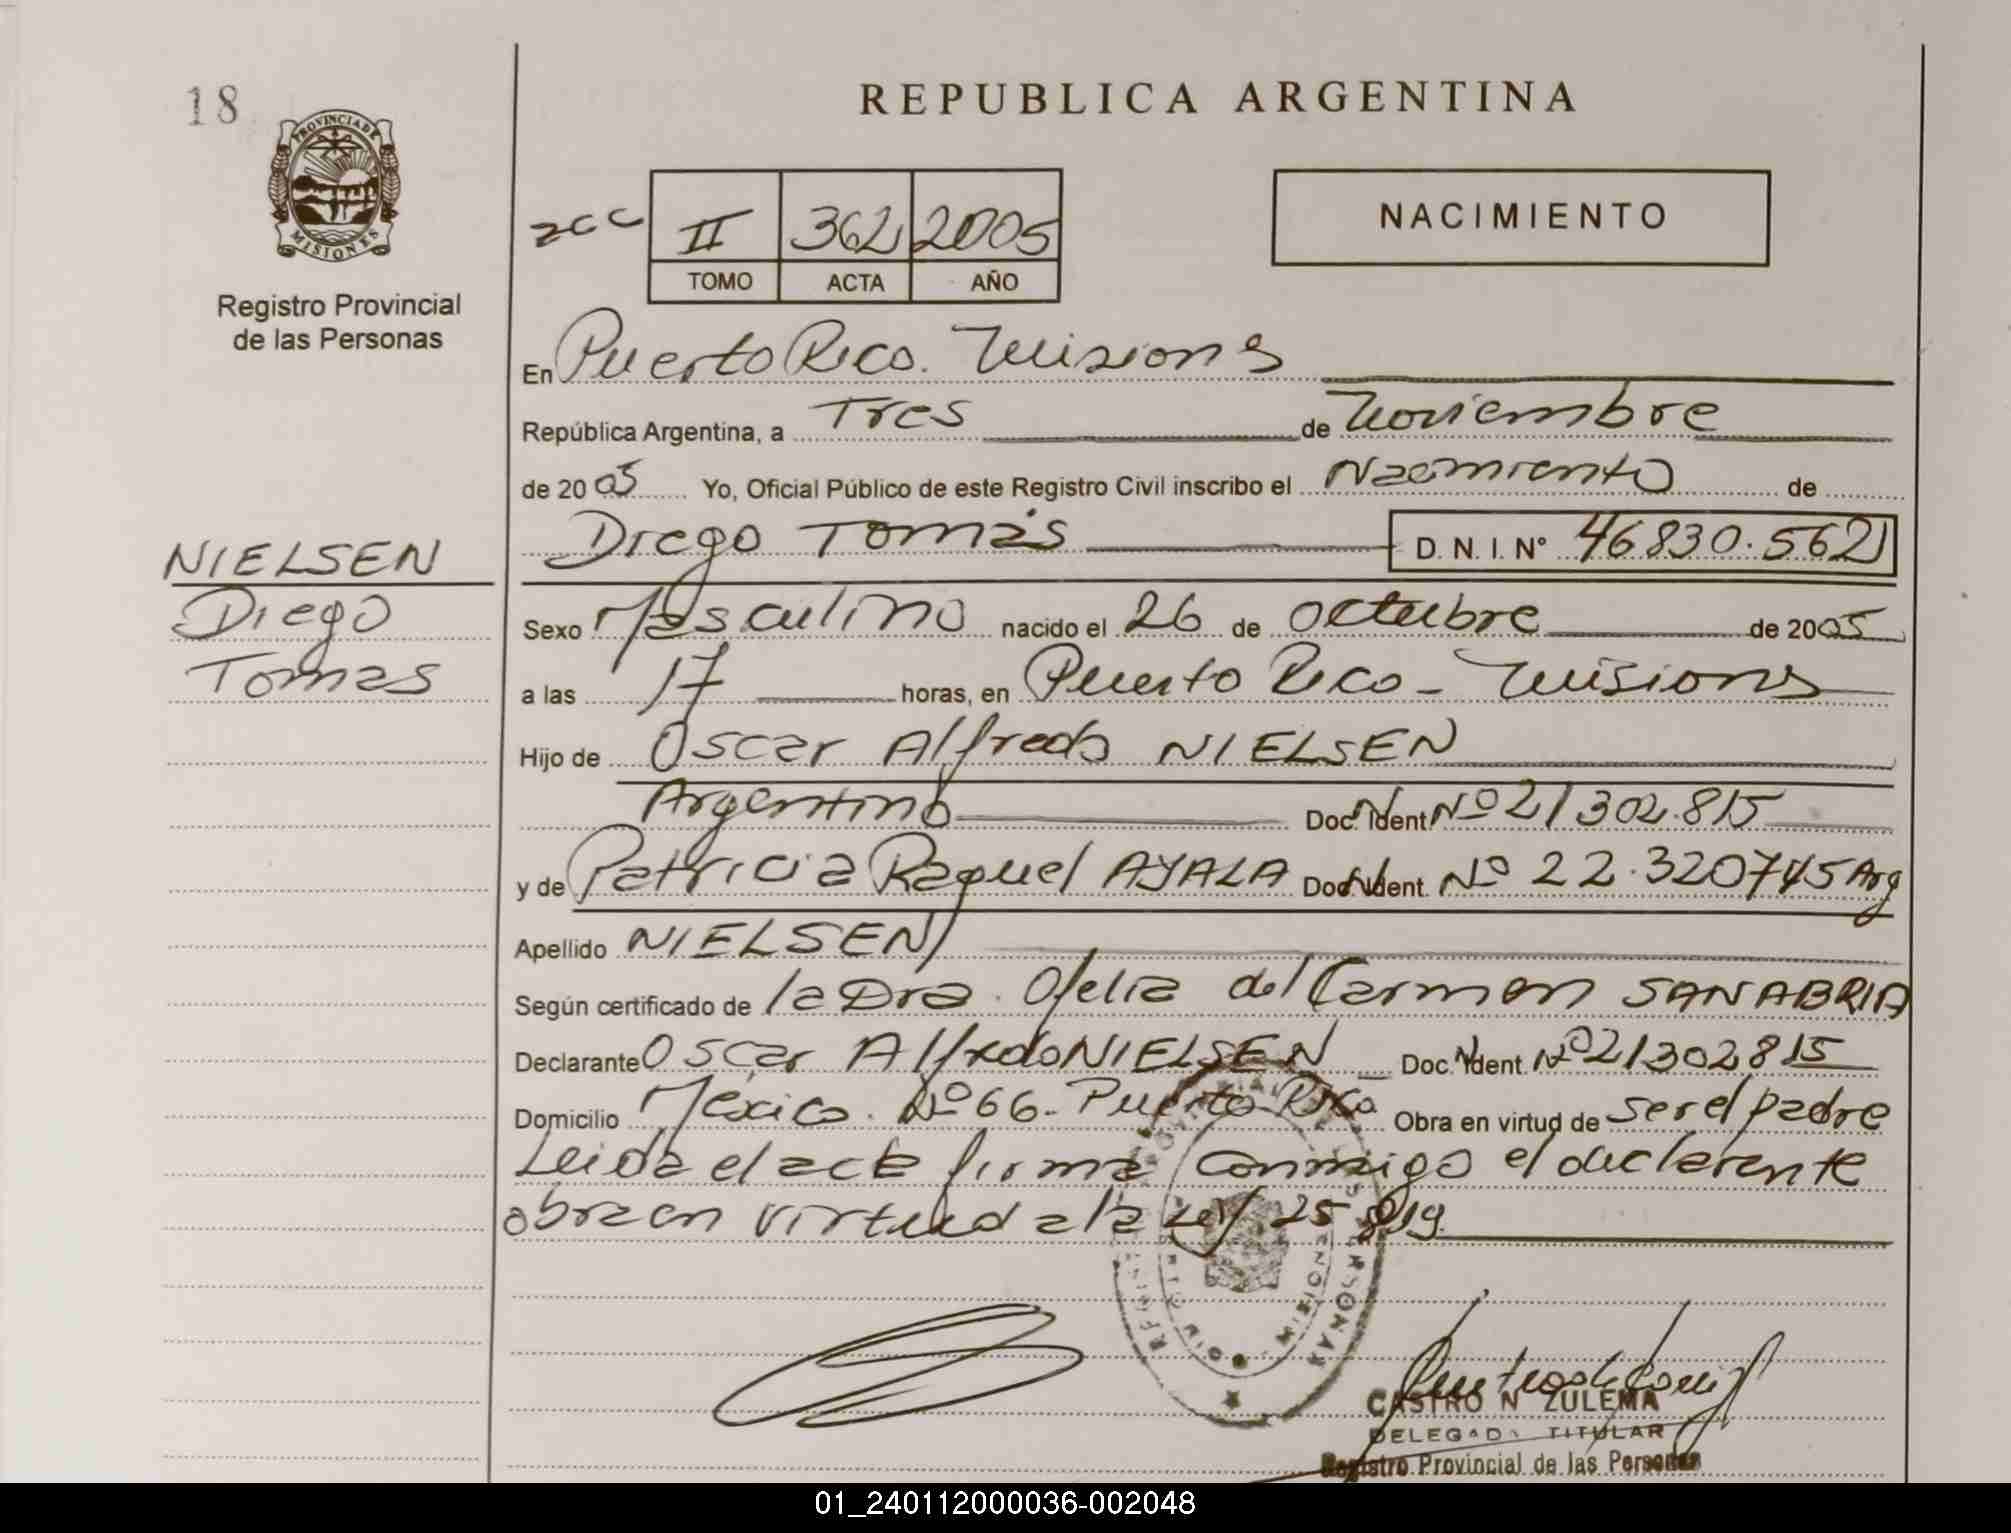 18
PROVINCIA DE
MISIONES
Registro Provincial
de las Personas
REPUBLICA ARGENTINA
II 362 2005
TOMO ACTA AÑO
NACIMIENTO
En Puerto Rico. Misiones
República Argentina, a Tres de Noviembre
de 2005 Yo, Oficial Público de este Registro Civil inscribo el Nacimiento de
Diego Tomás D. N. I. Nº 46830.562
NIELSEN
Diego
Tomas
Sexo Masculino nacido el 26 de octubre de 2005
a las 17 horas, en Puerto Rico - Misiones
Hijo de Oscar Alfredo NIELSEN
Argentino Doc. Ident Nº 21302.815
y de Patricia Raquel AYALA Doc. Ident. Nº 22.320745 Arg
Apellido NIELSEN
Según certificado de la Dra. Ofelia del Carmen SANABRIA
Declarante Oscar Alfredo NIELSEN Doc. Ident. Nº 21302815
Domicilio México. Nº 66- Puerto Rico Obra en virtud de ser el padre
Leida el acta firma conmigo el declarante
obra en virtud a la Ley 25 819.
CASTRO N ZULEMA
DELEGADA TITULAR
Registro Provincial de las Personas
01_240112000036-002048